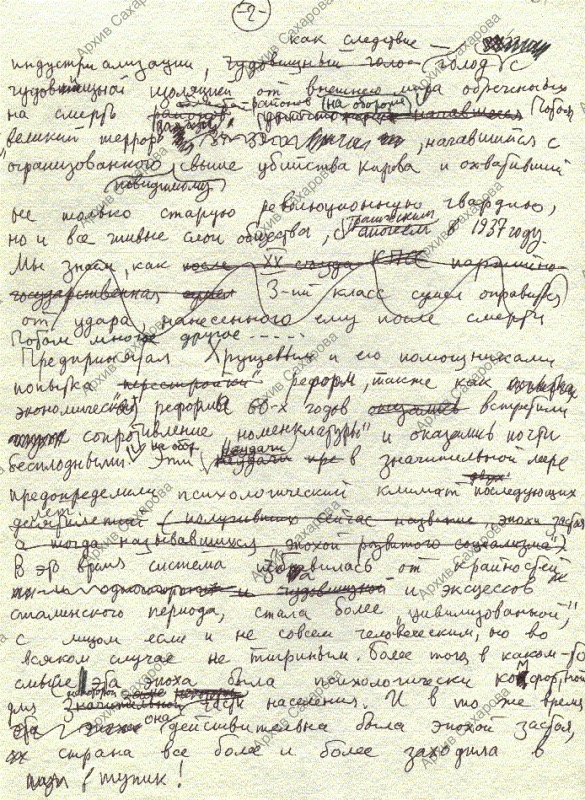 -2-
как следствие —
индустриализации, чудовищный голод — голод с
чудовищной изоляцией от внешнего мира обреченных
на смерть районов районов (на обороте) начавшийся Потом
"великий террор", начавшийся с
организованного свыше убийства Кирова и охвативший
(повидимому)
не только старую революционную гвардию,
но и все живые слои общества, с трагическим апогеем в 1937 году.
Мы знаем, как после XX съезда КПСС партийно-
государственная 3-ий класс сумел оправиться
от удара, нанесенного ему после смерти
Потом многое другое .....
Предпринятая Хрущевым и его помощниками
попытка "перестройки" реформ, также как
экономическая реформа 60-х годов оказались встретили
сопротивление "номенклатуры" и оказались почти
бесплодными. на обор. Эти неудачи неудачи в значительной мере
предопределили психологический климат последующих двух
десятилетий лет. (получивших сейчас название "эпохи застоя",
а тогда называвшихся "эпохой развитого социализма").
В это время система избавилась от крайностей
и чудовищной и эксцессов
сталинского периода, стала более "цивилизованной",
с лицом если и не совсем человеческим, но во
всяком случае не тигриным. Более того, в каком-то
смысле эта эпоха была психологически комфортной
для некоторой значительной части населения. И в то же время
эта эпоха она действительно была эпохой застоя,
страна все более и более заходила в
в тупик!
Архив Сахарова